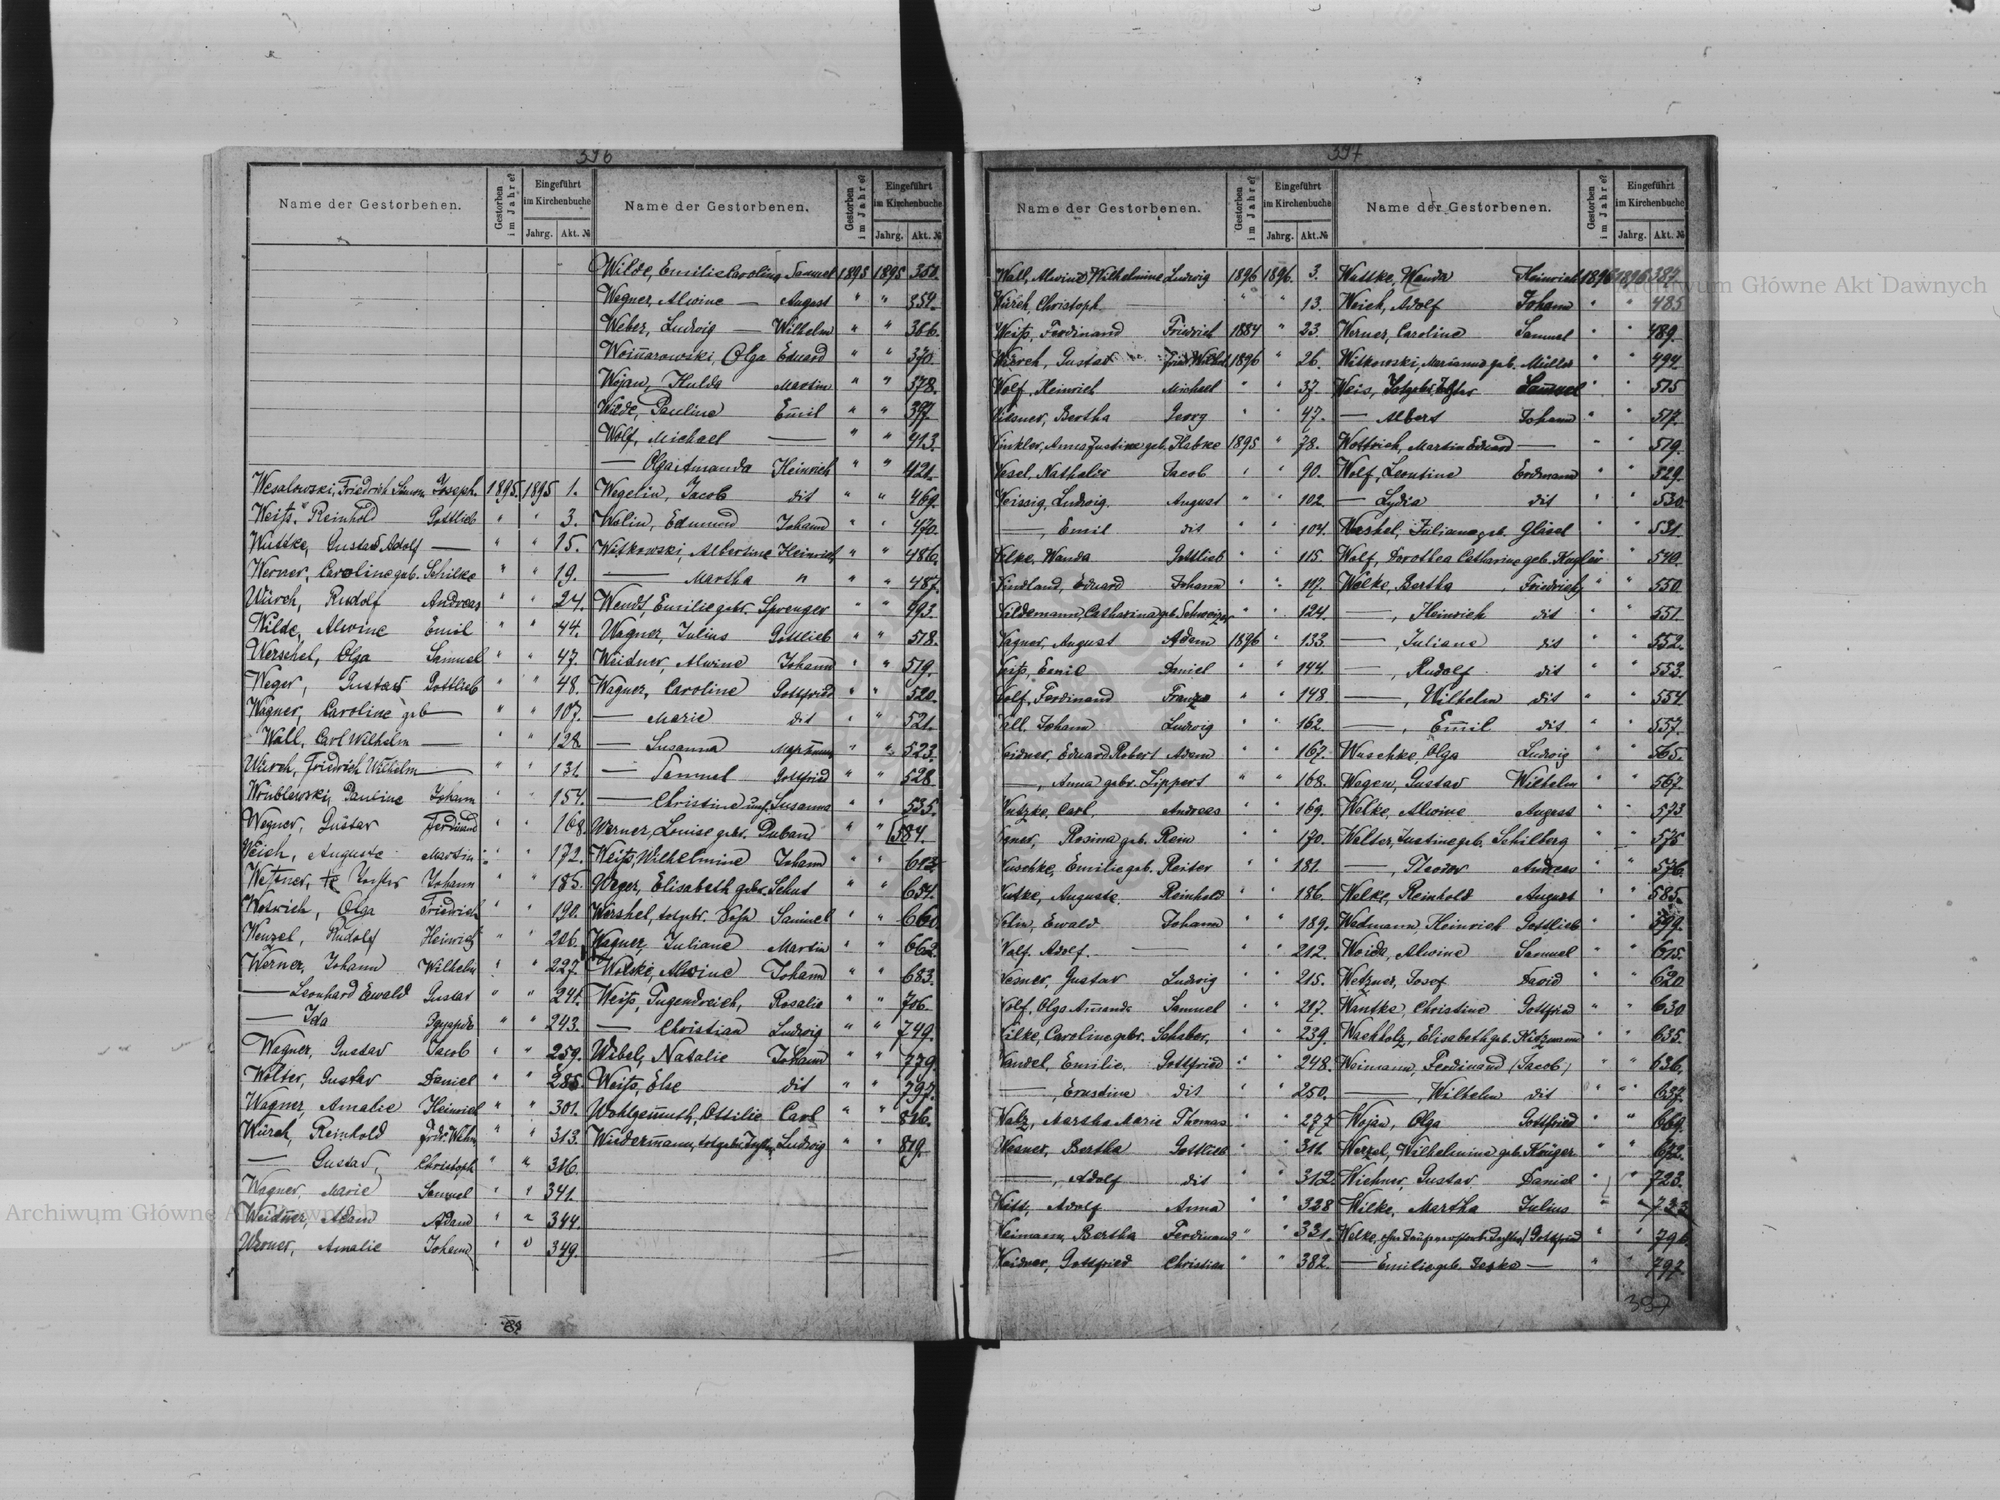 396
Name der Gestorbenen.
Gestorben im Jahre?
Eingeführt im Kirchenbuche
Jahrg. Akt. №
Wesalowski, Friedrich Joseph 1895 1895 1.
Weiß, Reinhold Gottlieb " " 3.
Wuttke, Gustav Adolf — " " 15.
Werner, Caroline geb. Schilke " " 19.
Würch, Rudolf Andreas " " 24.
Wilde, Alwine Emil " " 44.
Werschel, Olga Samuel " " 47.
Weger, Gustav Gottlieb " " 48.
Wagner, Caroline geb — " " 107.
Wall, Carl Wilhelm — " " 128
Würch, Friedrich Wilhelm — " " 131.
Wrublewski, Pauline Johann " " 154.
Wegner, Gustav Ferdinand " " 168
Weich, Auguste Martin " " 172.
Johann " " 185.
Olga Friedrich " " 190.
Wenzel, Rudolf Heinrich " " 206.
Werner, Johann Wilhelm " " 227.
— Leonhard Ewald Gustav " " 241.
— Ida Эдуардъ " " 243.
Wagner, Gustav Jacob " " 259.
Wolter, Gustav Daniel " " 285
Wagner, Amalie Heinrich " " 301.
Würch, Reinhold Frdr. Wilhm " " 313.
— Gustav, Christoph " " 316.
Wagner, Marie Samuel " " 341.
Weidner, Adam Adam " " 344.
Werner, Amalie Johann " " 349.
Name der Gestorbenen.
Gestorben im Jahre?
Eingeführt im Kirchenbuche
Jahrg. Akt. №
Wilde, Emilie Caroline, Samuel 1895 1895 351.
Wegner, Alwine — August " " 354.
Weber, Ludwig — Wilhelm " " 366.
Olga Eduard " " 370.
Wojan, Hulda Martin " " 378.
Wilde, Pauline Emil " " 397.
Wolf, Michael — " " 413.
— Olga Amanda Heinrich " " 421.
Wegelin, Jacob dit " " 469.
Wolin, Edmund Johann " " 470.
Witkowski, Albertine Heinrich " " 486.
— Martha " " " 487.
Wendt Emilie gebr. Sprenger " " 493.
Wagner, Julius Gottlieb " " 518.
Weidner, Alwine Johann " " 519.
Wagner, Caroline Gottfried " " 520.
— Marie dit " " 521.
— Susanna " " 523.
— Samuel Gottfried " " 528
— Christine Susanna " " 535.
Werner, Louise gebr. Duban " " 584.
Weiß, Wilhelmine Johann " " 613.
Weger, Elisabeth gebr. Schut " " 654.
Wershel, totgebr. Samuel " " 660.
Wagner, Juliane Martin " " 662.
Wolske, Alwine Johann " " 683.
Weiß, Tugendreich, Rosalie " " 706.
— Christian Ludwig " " 749.
Wibel, Natalie Johann " " 779.
Weiß, Else dit " " 797.
Wohlgemuth, Ottilie Carl " " 816.
Wiedermann, totgebr. Ludwig " " 819.
397
Name der Gestorbenen.
Gestorben im Jahre?
Eingeführt im Kirchenbuche
Jahrg. Akt. №
Wall, Alwine Wilhelmine Ludwig 1896 1896. 3.
Würch, Christoph " " 13.
Weiß, Ferdinand Friedrich 1884 " 23.
Würch, Gustav 1896 " 26.
Wolf, Heinrich Michael " " 37.
Bertha Georg " " 47.
Winkler, Anna Justine geb. Habke 1895 " 78.
Jacob " " 90.
Weissig, Ludwig. August " " 102.
—, Emil dit " " 104.
Wilke, Wanda Gottlieb " " 115.
Windland, Eduard Johann " " 117.
Wildemann, Catharina geb. Schweizer " " 124.
Wagner, August Adam 1896 " 133.
Weiß, Emil Daniel " " 144.
Wolf, Ferdinand Franz " " 148
Wall, Johann Ludwig " " 162.
Weidner, Eduard Robert Adam " " 167.
—, Anna gebr. Lippert " " 168.
Wutzke, Carl, Andreas " " 169.
Rosina geb. Rein " " 170.
Wuschke, Emilie geb. Reiter " " 181.
Wutke, Auguste Reinhold " " 186.
Wolin, Ewald Johann " " 189.
Wolf, Adolf. — " " 212.
Wesner, Gustav Ludwig " " 215.
Wolf, Olga Amanda Samuel " " 217.
Wilke, Caroline gebr. Schaber, " " 239.
Wandel, Emilie. Gottfried " " 248.
—, Ernstine dit " " 250.
Walz, Martha Marie Thomas " " 277
Wesner, Bertha Gottlieb " " 311.
—, Adolf dit " " 312.
Witt, Adolf Anna " " 328
Weimann, Bertha Ferdinand " " 331.
Weidner, Gottfried Christian " " 382.
Name der Gestorbenen.
Gestorben im Jahre?
Eingeführt im Kirchenbuche
Jahrg. Akt. №
Wuttke, Wanda Heinrich 1896 1896 387.
Weich, Adolf Johann " " 485
Werner, Caroline Samuel " " 489.
Witkowski, Marianna geb. Müller " " 494.
Weis, Samuel " " 515
— Albert Johann " " 517.
Wottrich, Martin Eduard — " " 519.
Wolf, Leontine Erdmann " " 529.
— Lydia dit " " 530.
Wershel, Juliane geb. Gläsel " " 531.
Wolf, Dorothea Catharine geb. Kugler " " 540.
Wolke, Bertha, Friedrich " " 550.
—, Heinrich dit " " 551.
—, Juliane dit " " 552.
—, Rudolf dit " " 553.
—, Wilhelm dit " " 554
—, Emil dit " " 557.
Waschke, Olga Ludwig " " 565.
Wagen, Gustav Wilhelm " " 567.
Welke, Alwine August " " 573
Walter, Justine geb. Schilberg " " 575
—, Theodor Andreas " " 576.
Welke, Reinhold August " " 585.
Wedmann, Heinrich Gottlieb " " 599.
Weida, Alwine Samuel " " 615.
Wetzner, Josef David " " 620
Wantke, Christine Gottfried " " 630
Wachholz, Elisabeth geb. Kitzmann " " 635.
Weimann, Ferdinand (Jacob) " " 636.
—, Wilhelm dit " " 637.
Wojan, Olga Gottfried " " 669.
Wenzel, Wilhelmine geb. Krüger " " 672.
Wichner, Gustav Daniel " " 723.
Wilke, Martha Julius " " 733
Welke, Gottfried " " 796
— Emilie geb. Jeske — " " 797.
397
Archiwum Główne Akt Dawnych
Archiwum Główne Akt Dawnych